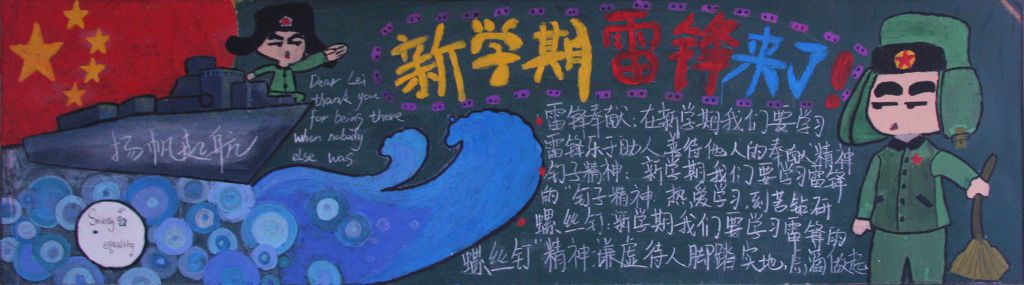 新学期雷锋来了!
扬帆起航
Dear Lei
thank you
for being there
when nobody
else was
雷锋奉献:在新学期我们要学习
雷锋乐于助人善待他人的奉献精神
钉子精神:新学期我们要学习雷锋
的"钉子精神"热爱学习,刻苦钻研
螺丝钉:新学期我们要学习雷锋的
"螺丝钉"精神:谦虚待人脚踏实地,点滴做起
Society
equality